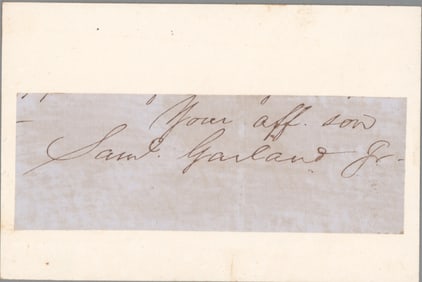 Your aff. son
Saml. Garland Jr.